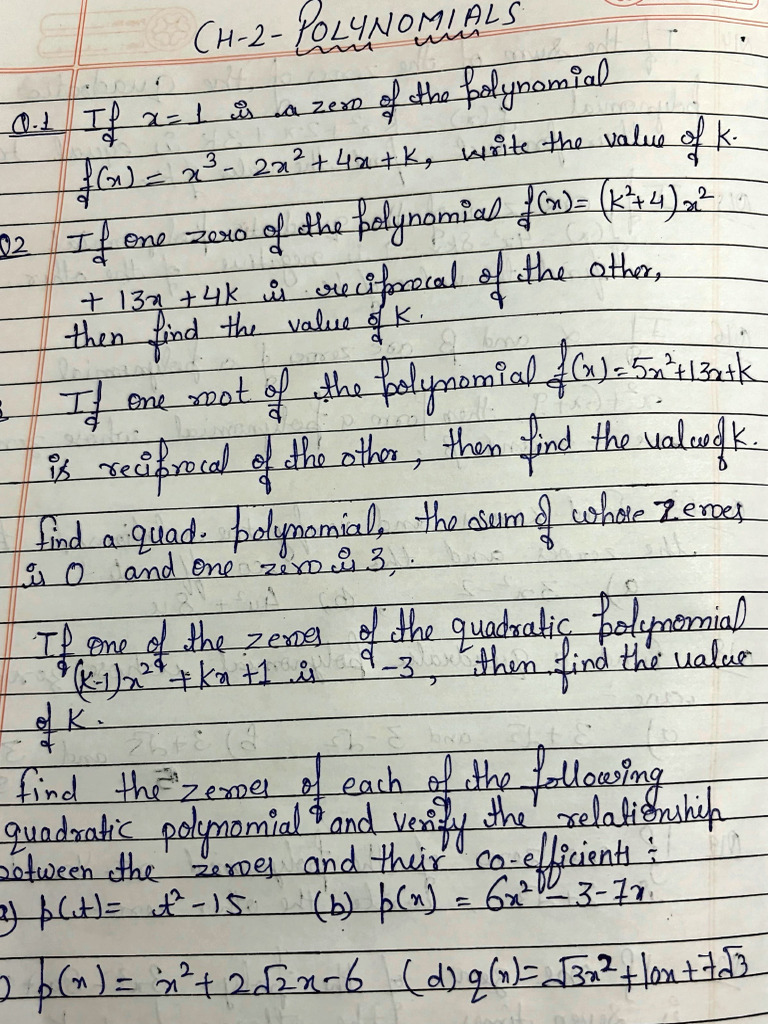 CH-2-POLYNOMIALS
Q.1 If x=1 is a zero of the polynomial
f(x) = x³ - 2x² + 4x + k, write the value of k.
Q2 If one zero of the polynomial f(x) = (k²+4)x²
+ 13x + 4k is reciprocal of the other,
then find the value of k.
If one root of the polynomial f(x) = 5x²+13x+k
is reciprocal of the other, then find the value of k.
find a quad. polynomial, the sum of whose zeroes
is 0 and one zero is 3.
If one of the zeroes of the quadratic polynomial
(k-1)x² + kx + 1 is -3, then find the value
of k.
find the zeroes of each of the following
quadratic polynomial and verify the relationship
between the zeroes and their co-efficients :
a) p(t) = t² - 15. (b) p(x) = 6x² - 3 - 7x.
) p(x) = x² + 2√2x - 6 (d) q(x) = √3x² + 10x + 7√3